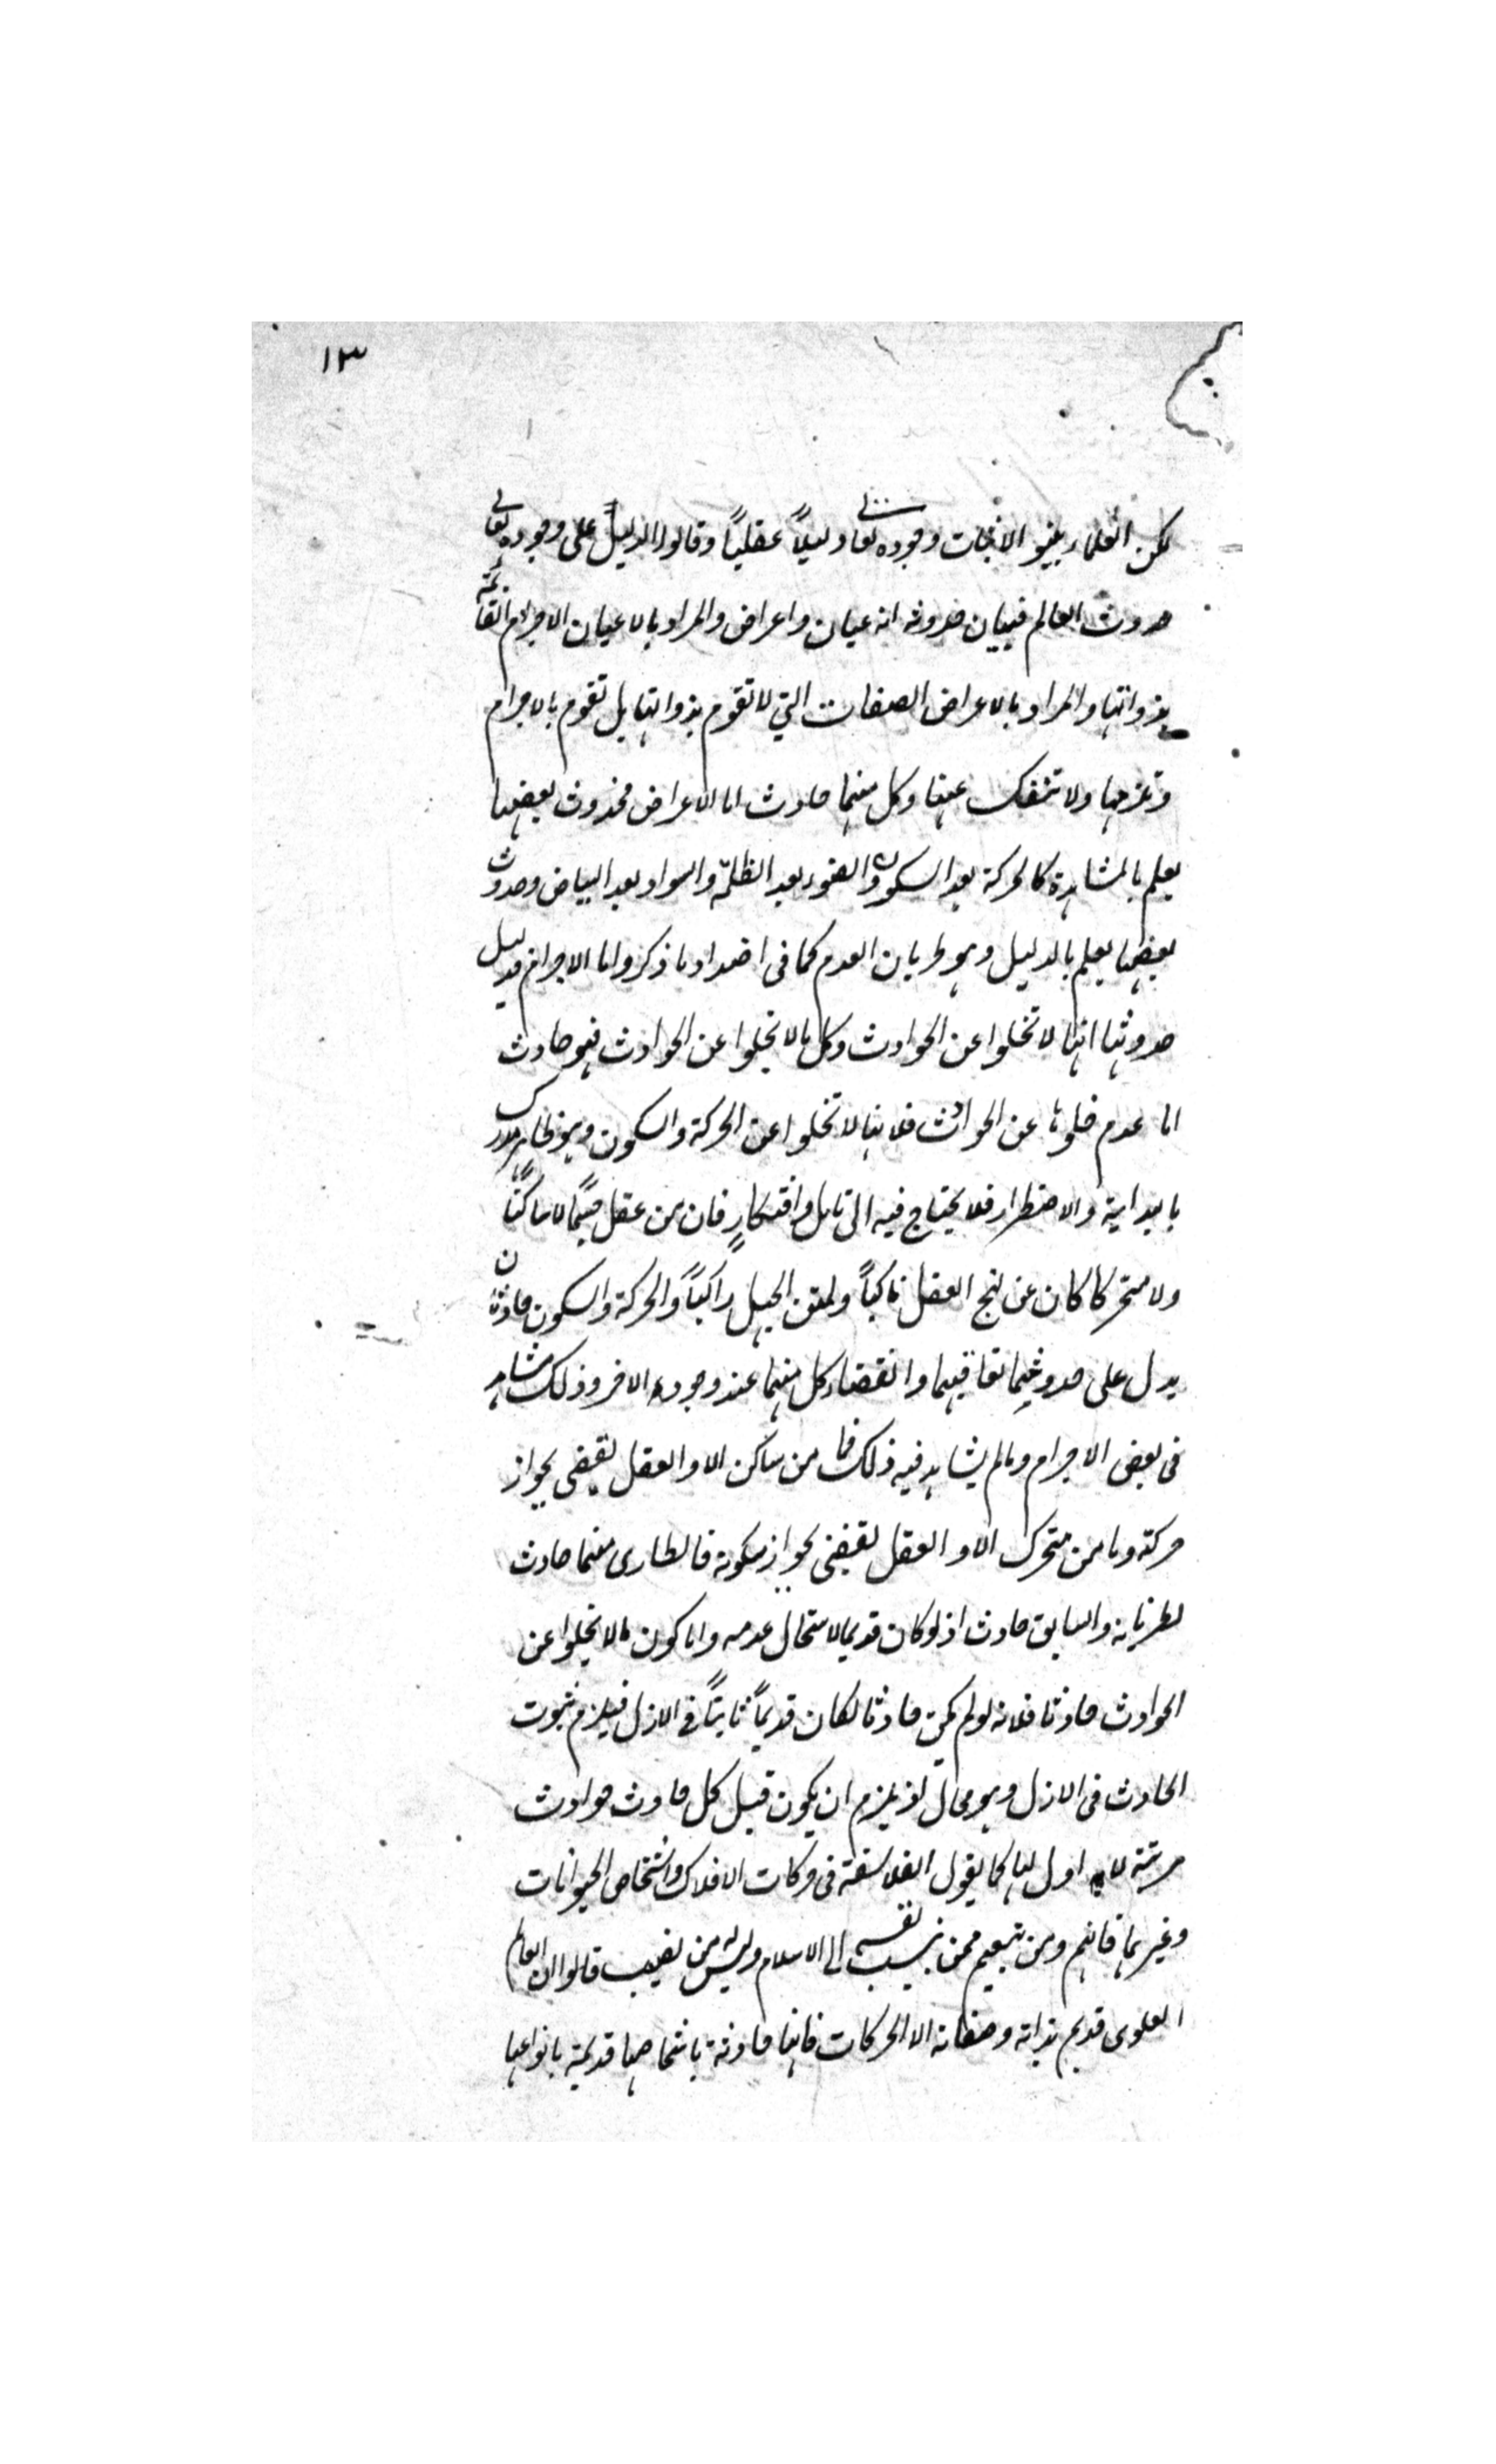 ١٣
لكن العلماء بينوا لاثبات وجوده تعالى دليلاً عقلياً وقالوا الدليل على وجوده تعالى
حدوث العالم فبيان حدوثه انه عيان واعراض والمراد بالاعيان الاجرام القائمة
بذواتها والمراد بالاعراض الصفات التي لا تقوم بذواتها بل تقوم بالاجرام
وتلزمها ولا تنفك عنها وكل منهما حادث اما الاعراض فحدوث بعضها
يعلم بالمشاهدة كالحركة بعد السكون والضوء بعد الظلمة والسواد بعد البياض وحدوث
بعضها يعلم بالدليل وهو طريان العدم كما في اضداد ما ذكر واما الاجرام فدليل
حدوثها انها لا تخلوا عن الحوادث وكل ما لا يخلوا عن الحوادث فهو حادث
اما عدم خلوها عن الحوادث فلانها لا تخلوا عن الحركة والسكون وهو ظاهر مدرك
بالبداهة والاضطرار فلا يحتاج فيه الى تامل وافتكارٍ فان من عقل جسماً لا ساكناً
ولا متحركا كان عن نهج العقل ناكباً ولمتن الجهل راكباً والحركة والسكون حادثان
يدل على حدوثهما تعاقبهما وانقضاء كل منهما عند وجوده الاخر وذلك مشاهد
في بعض الاجرام وما لم يشاهد فيه ذلك فما من ساكن الا والعقل يقضى بجواز
حركته وما من متحرك الا والعقل يقضى بجواز سكونه فالطارى منهما حادث
لطريانه والسابق حادث اذ لو كان قديما لاستحال عدمه واما كون ما لا يخلوا عن
الحوادث حادثا فلانه لو لم يكن حادثا لكان قديماً ثابتاً في الازل فيلزم ثبوت
الحادث في الازل وهو محال اذ يلزم ان يكون قبل كل حادث حوادث
مرتبة لا اول لها كما يقول الفلاسفة في حركات الافلاك واشخاص الحيوانات
وغيرها فانهم ومن تبعهم ممن ينسب نفسه الى الاسلام وليس له من نصيب قالوا ان العالم
العلوى قديم بذاته وصفاته الا الحركات فانها حادثة باشخاصها قديمة بانواعها